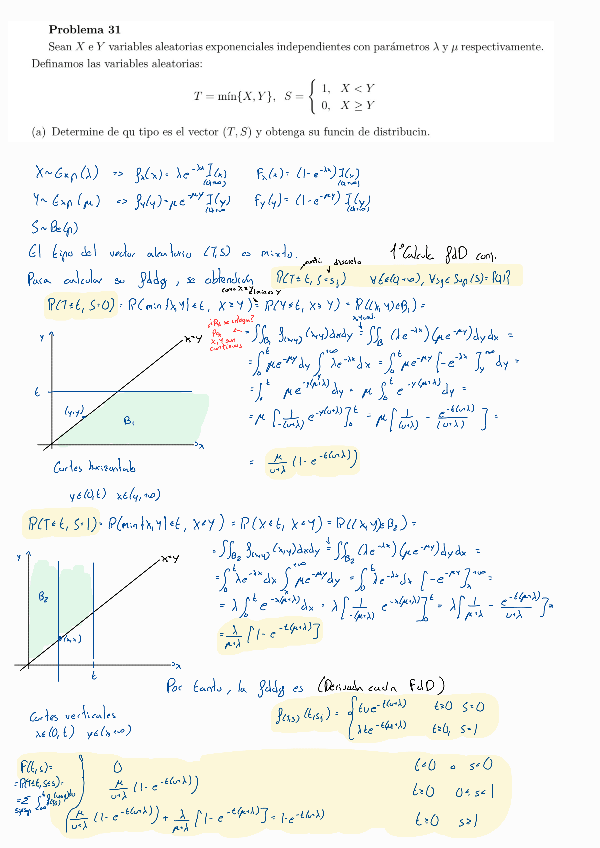 Problema 31
Sean X e Y variables aleatorias exponenciales independientes con parámetros λ y μ respectivamente.
Definamos las variables aleatorias:
T = mín{X, Y}, S = { 1, X < Y
0, X ≥ Y
(a) Determine de qu tipo es el vector (T, S) y obtenga su funcin de distribucin.
X ~ Exp(λ) => f_X(x) = λe^{-λx} I(x) (0,+∞) F_X(x) = (1-e^{-λx}) I(x) (0,+∞)
Y ~ Exp(μ) => f_Y(y) = μe^{-μy} I(y) (0,+∞) F_Y(y) = (1-e^{-μy}) I(y) (0,+∞)
S ~ Be(p)
El tipo del vector aleatorio (T,S) es mixto. 1º Calcula FdD conj.
Para calcular su fddg, se obtendrán P(T≤t, S=s_i)
P(T≤t, S=0) = P(min{X,Y}≤t, X≥Y) = P(Y≤t, X≥Y) = P((X,Y)∈B₁) =
= ∫∫_{B₁} f_{(X,Y)}(x,y)dxdy = ∫∫_{B₁} (λe^{-λx})(μe^{-μy})dydx =
= ∫₀^t μe^{-μy}dy ∫_y^{+∞} λe^{-λx}dx = ∫₀^t μe^{-μy} [-e^{-λx}]_y^{+∞} dy =
= ∫₀^t μe^{-y(μ+λ)}dy = μ ∫₀^t e^{-y(μ+λ)}dy =
= μ [1/-(μ+λ) e^{-y(μ+λ)}]₀^t = μ [1/(μ+λ) - e^{-t(μ+λ)}/(μ+λ)] =
= μ/(μ+λ) (1-e^{-t(μ+λ)})
y
x=y
t
(y,y)
B₁
x
Cortes horizontales
y∈(0,t) x∈(y,+∞)
P(T≤t, S=1) = P(min{X,Y}≤t, X<Y) = P(X≤t, X<Y) = P((X,Y)∈B₂) =
= ∫∫_{B₂} f_{(X,Y)}(x,y)dxdy = ∫∫_{B₂} (λe^{-λx})(μe^{-μy})dydx =
= ∫₀^t λe^{-λx}dx ∫_x^{+∞} μe^{-μy}dy = ∫₀^t λe^{-λx}dx [-e^{-μy}]_x^{+∞} =
= λ ∫₀^t e^{-x(μ+λ)}dx = λ [1/-(μ+λ) e^{-x(μ+λ)}]₀^t = λ [1/(μ+λ) - e^{-t(μ+λ)}/(μ+λ)] =
= λ/(μ+λ) [1-e^{-t(μ+λ)}]
y
x=y
B₂
(x,x)
t
x
Por tanto, la fddg es (Derivada cada FdD)
Cortes verticales
x∈(0,t) y∈(x,+∞)
t≥0 s=0
t≥0, s=1
F(t,s) =
= P(T≤t, S≤s) =
0 t<0 o s<0
μ/(μ+λ) (1-e^{-t(μ+λ)}) t≥0 0≤s<1
μ/(μ+λ) (1-e^{-t(μ+λ)}) + λ/(μ+λ) [1-e^{-t(μ+λ)}] = 1-e^{-t(μ+λ)} t≥0 s≥1